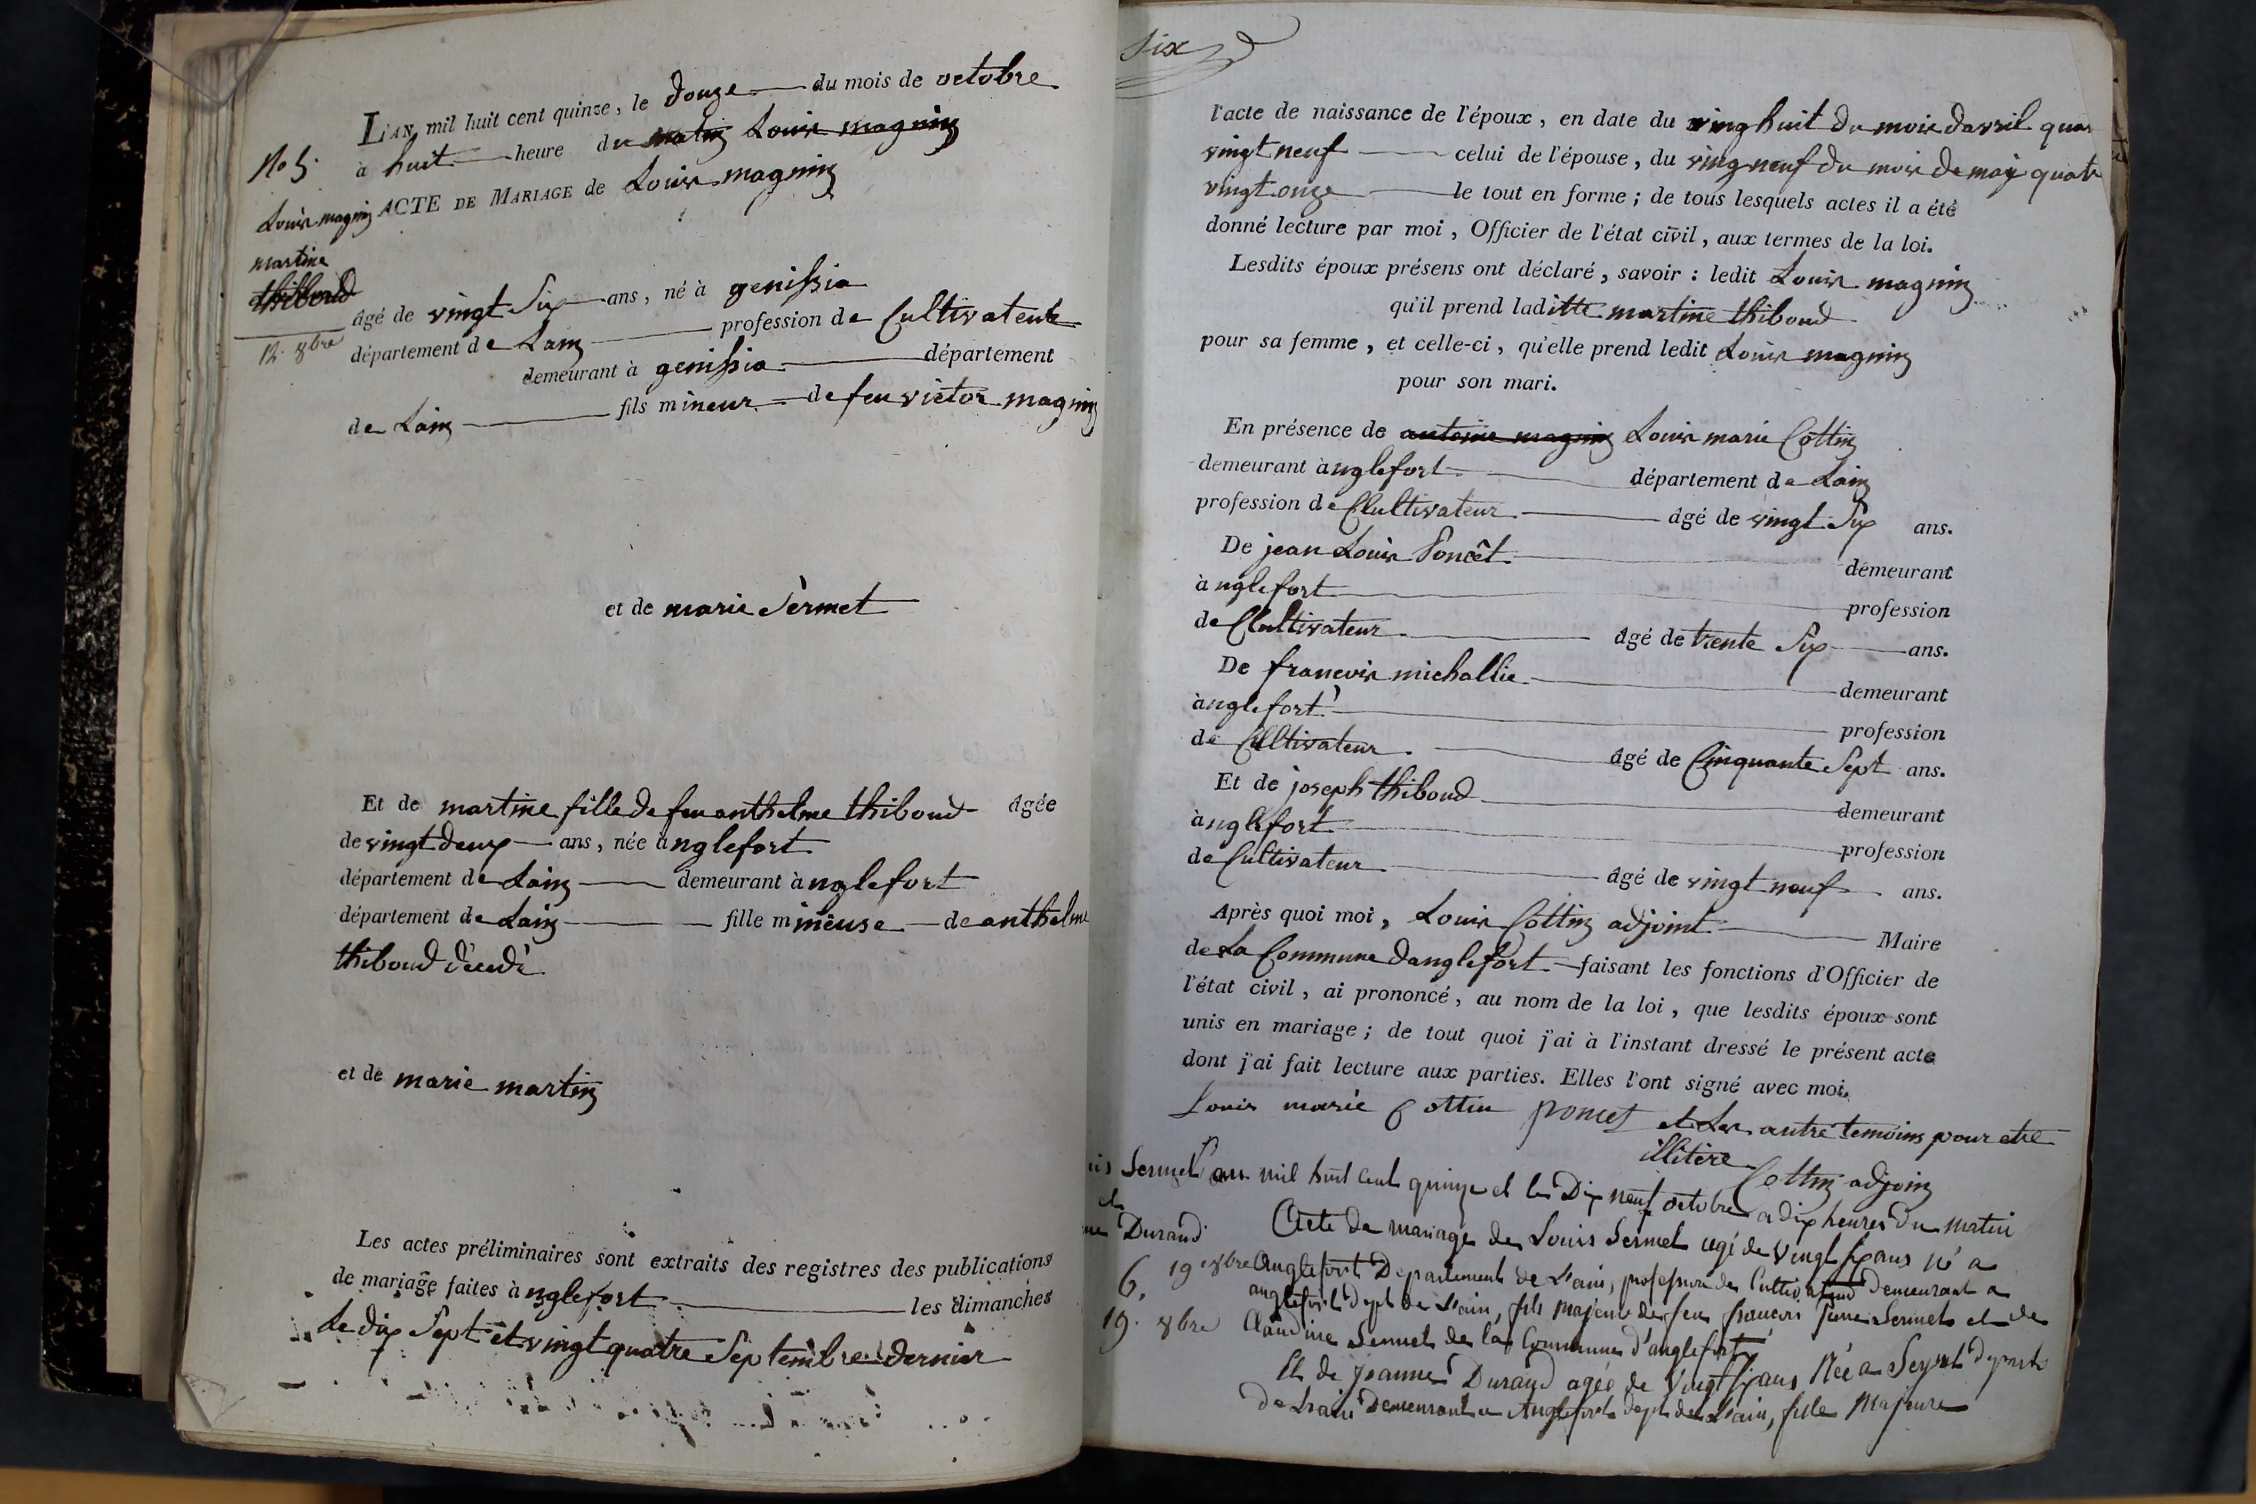 L'AN mil huit cent quinze, le douze du mois de octobre
à huit heure du matin Louis magnin
No 5.
ACTE DE MARIAGE de Louis magnin
Louis magnin
martine
thiboud
12. 8bre
âgé de vingt Six ans, né à genissia
département de Lain profession de Cultivateur
demeurant à genissia département
de Lain fils mineur de feu victor magnin
et de marie Sermet
Et de martine fille de feu anthelme thiboud âgée
de vingt deux ans, née à nglefort
département de Lain demeurant à nglefort
département de Lain fille mineuse de anthelme
thiboud décédé
et de marie martin
Les actes préliminaires sont extraits des registres des publications
de mariage faites à nglefort les dimanches
Le dix Sept et vingt quatre Septembre dernier
Six
l'acte de naissance de l'époux, en date du ving huit du mois davril quat
vingt neuf celui de l'épouse, du ving neuf du mois de may quatr
vingt onze le tout en forme; de tous lesquels actes il a été
donné lecture par moi, Officier de l'état civil, aux termes de la loi.
Lesdits époux présens ont déclaré, savoir: ledit Louis magnin
qu'il prend laditte martine thiboud
pour sa femme, et celle-ci, qu'elle prend ledit Louis magnin
pour son mari.
En présence de antoine magnin Louis marie Cottin
demeurant à nglefort département de Lain
profession de Cultivateur âgé de vingt Six ans.
De jean Louis Poncêt demeurant
à nglefort profession
de Cultivateur âgé de trente Six ans.
De francois michallie demeurant
à nglefort profession
de Cultivateur âgé de Cinquante Sept ans.
Et de joseph thiboud demeurant
à nglefort profession
de Cultivateur âgé de vingt neuf ans.
Après quoi moi, Louis Cottin adjoint Maire
de La Commune danglefort faisant les fonctions d'Officier de
l'état civil, ai prononcé, au nom de la loi, que lesdits époux sont
unis en mariage; de tout quoi j'ai à l'instant dressé le présent acte
dont j'ai fait lecture aux parties. Elles l'ont signé avec moi.
Louis marie Cottin poncet et Les autre temoins pour etre
illitere
Cottin adjoin
is Sermet
et
ne Durand
6.
19 8bre
19. 8bre
L'an mil huit cent quinze et le Dix neuf octobre a dix heures du matin
Acte de mariage de Louis Sermet agé de vingt six ans né a
Anglefort Departement de L'ain, profession de Cultivateur demeurant a
anglefort dept de L'ain, fils majeur de feu francois Sermet et de
Claudine Sermet de la Commune d'anglefort
Et de Jeanne Durand agée de vingt six ans Née a Seyssel departt
de Lain Demeurant a Anglefort dept de L'ain, fille Majeure